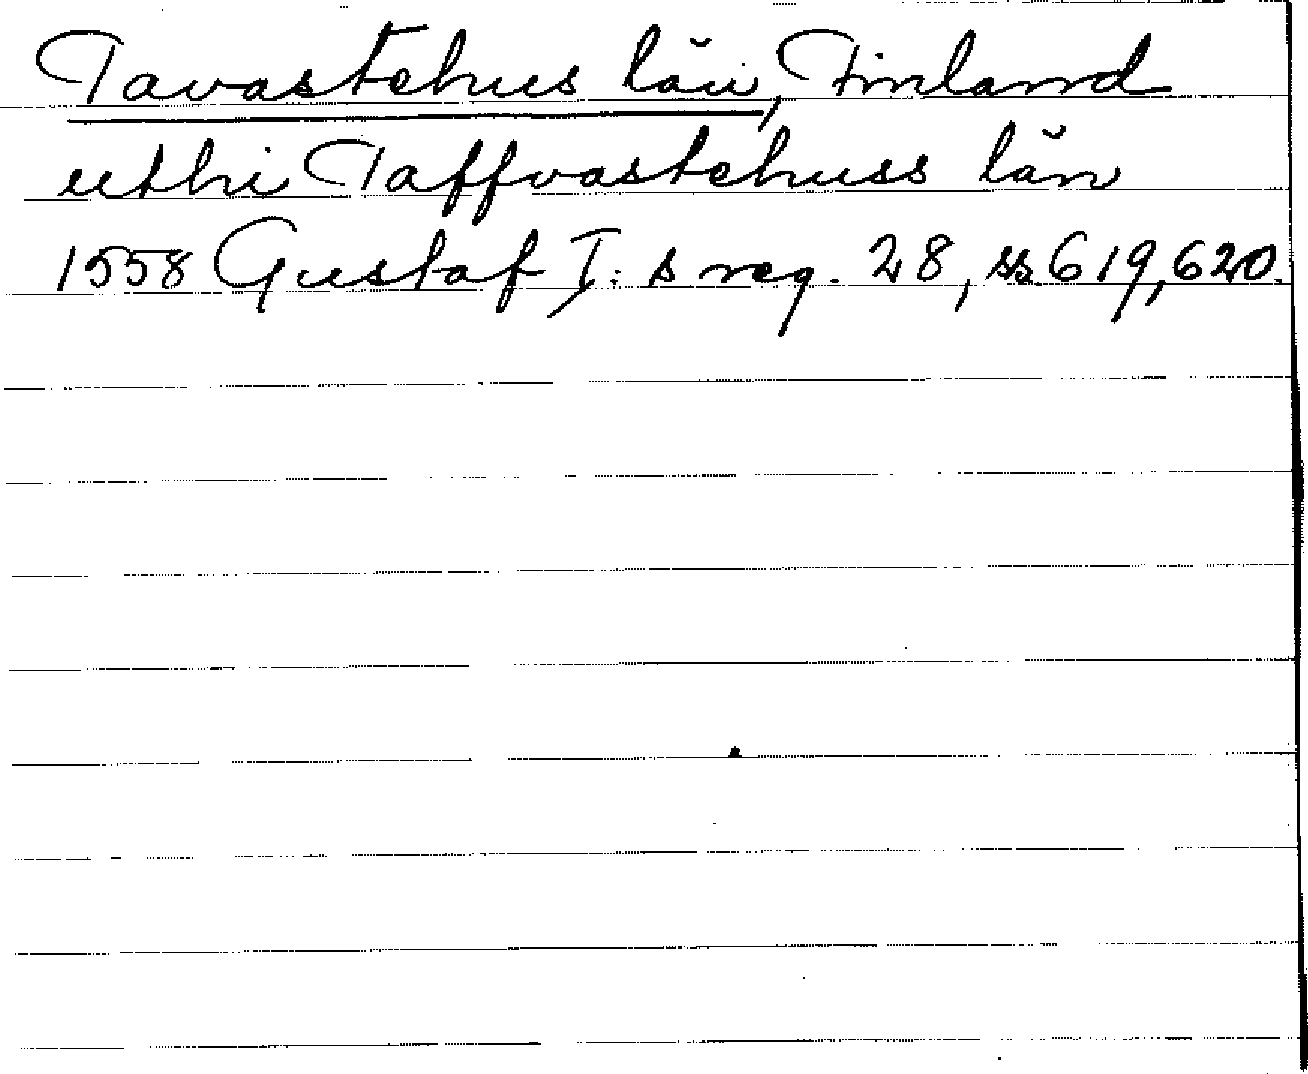 Tavastehus län, Finland
uthi Taffvastehuss län
1558 Gustaf I:s reg. 28, ss. 619, 620.